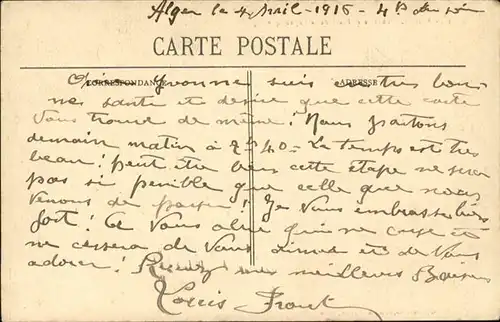 Alger le 4 Avril - 1915 - 4h du soir
CARTE POSTALE
CORRESPONDANCE ADRESSE
Yvonne suis en très bonne
santé et désire que cette carte
vous trouve de même! Nous partons
demain matin à 7h40 - Le temps est très
beau! peut être bien cette étape ne sera
pas si penible que celle que nous
venons de passer! Je vous embrasse bien
fort! A vous celui qui ne cesse et
ne cessera de vous aimer et de vous
adorer! Recevez mes meilleurs Baisers
Louis